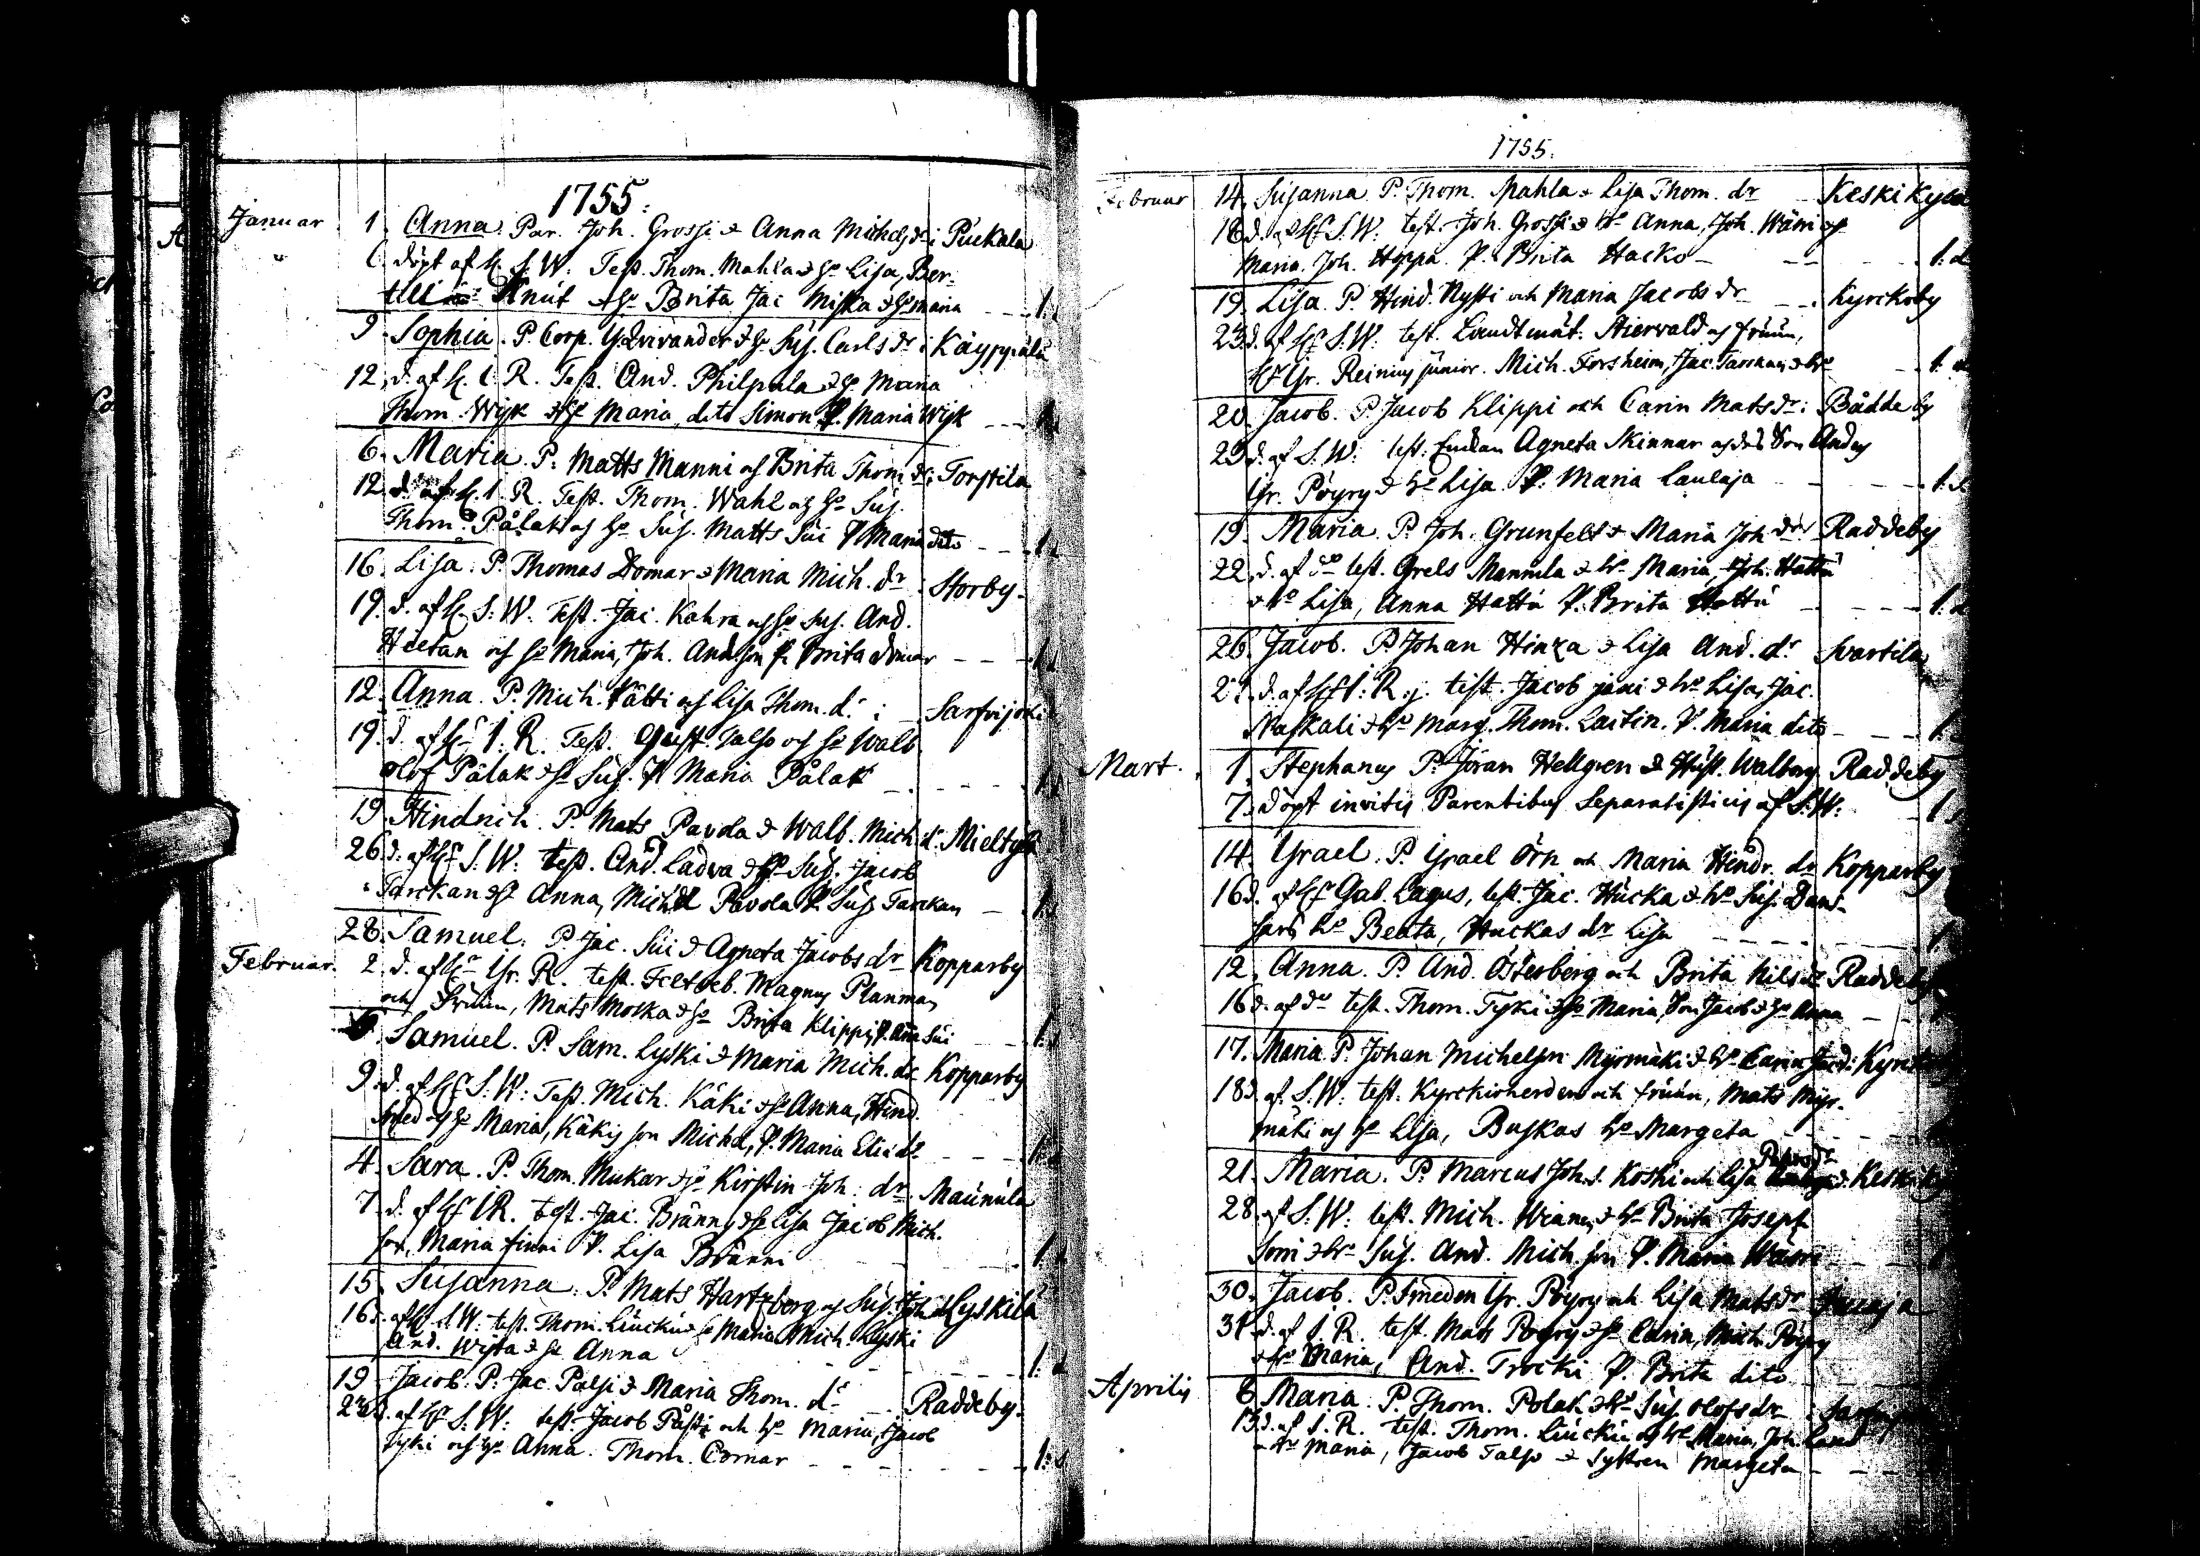 1755.
Januar 1. Anna. Par. Joh. Grossi & Anna Michelsdr i Puckala
6. döpt af H. S. W. Test. Thom. Mahla & hs Lisa, Ber-
till Knut & hs Brita Jac Miska & hs maria - - 1.
9 Sophia. P. Corp. Qvivander & hs Sus. Carls dr i Käyppälä
12. d. af H. I. R. Test. And. Philpula & hs Maria
Thom. Wijk & hs Maria, dito Simon P. Maria Wijk - - -
6. Maria. P. Matts Manni och Brita Thom. dr. i Torstila
12. d. af H. I. R. Test. Thom. Wahl och hs Sus.
Thom. Pålak och hs Sus. Matts Sui P. Maria dito - - -
16. Lisa. P. Thomas Domar & Maria Mich. dr Storby.
19. d. af H. S. W. Test. Jac. Kahra och hs Sus. And.
och hs Maria, Joh. And. son P. Brita domar - - -
12. Anna. P. Mich. Pätti och Lisa Thom. d. i Sarfvijocki
19. d. af Hr I. R. Test. Gust. Talso och hs Walb
Olof Pålak & hs Sus. P. Maria Pålak - - - -
19. Hindrich. P. Mats Pavola & Walb. Mich. dr. Mieltylä
26. d. af Hr S. W. test. And. Ladva & hs Sus. Jacob
Tarckan & hs Anna, Michel Pavola P. Sus. Tarckan - 1.
28. Samuel. P. Jac. Sui & Agneta Jacobs dr Kopparby
Februar. 2. d. af Hr Gr. R. test. Feltveb. Magnus Planman
och fruun, Mats Moska & hs Brita Klippi, P. Ana Sui
Samuel. P. Sam. Lyski & Maria Mich. dr Kopparby
9. d. af Hr S. W. Test. Mich. Käki & hs Anna, Hind.
Smed och hs Maria, Käkis son Michel, P. Maria Eliæ dr
4. Sara. P. Thom. Mukar & hs Kirstin Joh. dr Maunula
7. d. af Hr I. R. test. Jac. Bränni & hs Lisa Jacob Mich.
son, Maria finni P. Lisa Bränni
15. Susanna. P. Mats Hartzberg och Sus. Joh. d Lyskilä
16. d. af Hr S. W. test. Thom. Liuckiu & hs Maria Mich. Lyski
And. Wijta & hs Anna 1.
19 Jacob. P. Jac. Palsi & Maria Thom. dr Raddeby.
23. d. af Hr S. W. test. Jacob Påsti och hs Maria, Jacob
Tyki och hs Anna. Thom. Comar - - - 1.
1755.
Februar 14. Susanna P. Thom. Mahla & Lisa Thom. dr Keski Kylä
16. d. af Hr S. W. test. Joh. Grossi & hs Anna, Joh. Wäni och
Maria. Joh. Hyppä. P. Brita Hacko - - - 1. d
19. Lisa. P. Hind. Nysti och Maria Jacobs dr - - Kyrckoby
23. d. af Hr S. W. test. Landtmät. Stiervald och fruun,
Hr Gr. Reinius junior. Mich. Forsheim, Jac. Tarckan & hs - 1.
20. Jacob. P. Jacob Klippi och Carin Mats dr i Bådde by
23 d. af S. W. test. Enckan Agneta Skinnar och des Son Anders
Gr. Pöyry & hs Lisa. P. Maria Laulaja - - 1.
19. Maria. P. Joh. Grunfelt & Maria Joh dr Raddeby
22. d. af do test. Grels Mannila & hs Maria, Joh. Hattu
& hs Lisa, Anna Hattu P. Brita Hattu - - - 1.
26. Jacob. P. Johan Hinza & Lisa And. dr Svartila
27. d. af Hr I. R. j. test. Jacob jani & hs Lisa, Jac.
Naskali & hs Marg. Thom. Lastin. P. Maria dito - - 1.
Mart. 1. Stephanus P. Jöran Hellgren & Hust. Walborg Raddeby
7. döpt invitis Parentibus Separatisticis af S. W. 1
14. Israel. P. Israel Örn och Maria Hindr. dr Kopparby
16 d. af Hr Gab. Lagus, test. Jac. Hucka & hs Sus. Dans-
fars hs Beata, Huckas dr Lisa - - -
12. Anna. P. And. Österberg och Brita Nils dr Raddeby
16 d. af do test. Thom. Tyki & hs Maria, Son Jacob & hs Anna - -
17. Maria P. Johan Michelson Myrmäki & hs Carin Jac. d.
18 d. af. S. W. test. Kyrckioherden och fruun, Mats Myr-
mäki och hs Lisa, Buskas hs Margeta
21. Maria. P. Marcus Joh. s. Koski och Lisa
28. af S. W. test. Mich. & hs Brita Josepf
Soni & hs Sus. And. Mich. son P. Maria
30. Jacob. P. Smeden Gr. Pöyry och Lisa Mats dr
31 d. af I. R. test. Mats Pöyry & hs Carin, Mich. Pöyry
& hs Maria, And. Trocki P. Brita dito
Aprilis 6 Maria. P. Thom. Polak & hs Sus. Olofs dr
13 d. af I. R. test. Thom. Liuckiu och hs Maria, Joh.
& hs Maria, Jacob Talso & Systren Margeta - -